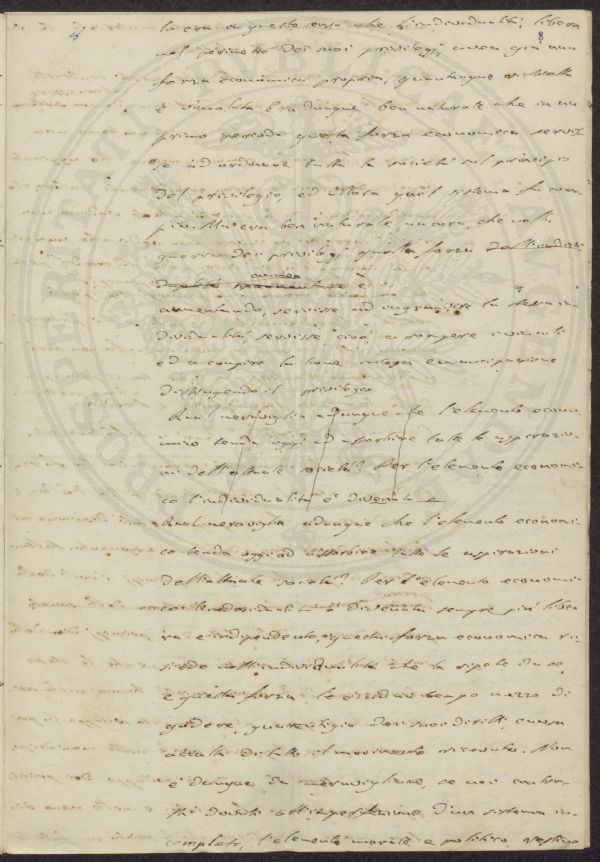 8
la era a questo that l'individualità, libera
nel perimetro dei suoi privilegj, avea già una
forza economica propria, quantunque
è vincolata. Era dunque ben naturale che in un
primo periodo questa forza economica servis-
se ad ordinare tutta la società sul principio
del privilegio, ed allora quel sistema fu com-
piuto. Ma era ben naturale ancora, che nella
guerra dei privilegj quella forza dell'individu-
aumentando, servisse ad ingrandire la stessa in-
dividualità, servisse cioè a rompere i vincoli
ed a compire la sua emancipazione
distruggendo il privilegio
Qual meraviglia adunque che l'elemento econo-
mico tenda oggi ad assorbire tutte le aspirazio-
ni dell'attuale società? Per l'elemento economi-
co l'individualità è divenuta
Qual meraviglia adunque che l'elemento economi-
co tenda oggi ad assorbire tutte le aspirazioni
dell'attuale società? Per l'elemento economi-
co l'individualità è divenuta sempre più libe-
ra e indipendente, questa forza economica ri-
siede nell'individualità che la ripete da se,
e questa forza le è ad un tempo mezzo di
godere, guarentigia dei suoi diritti, causa
di tutto il movimento ricevuto. Non
è dunque da meravigliare, se nei contra-
sti dovuti all'imperfezione d'un sistema in-
completo, l'elemento morale e politico